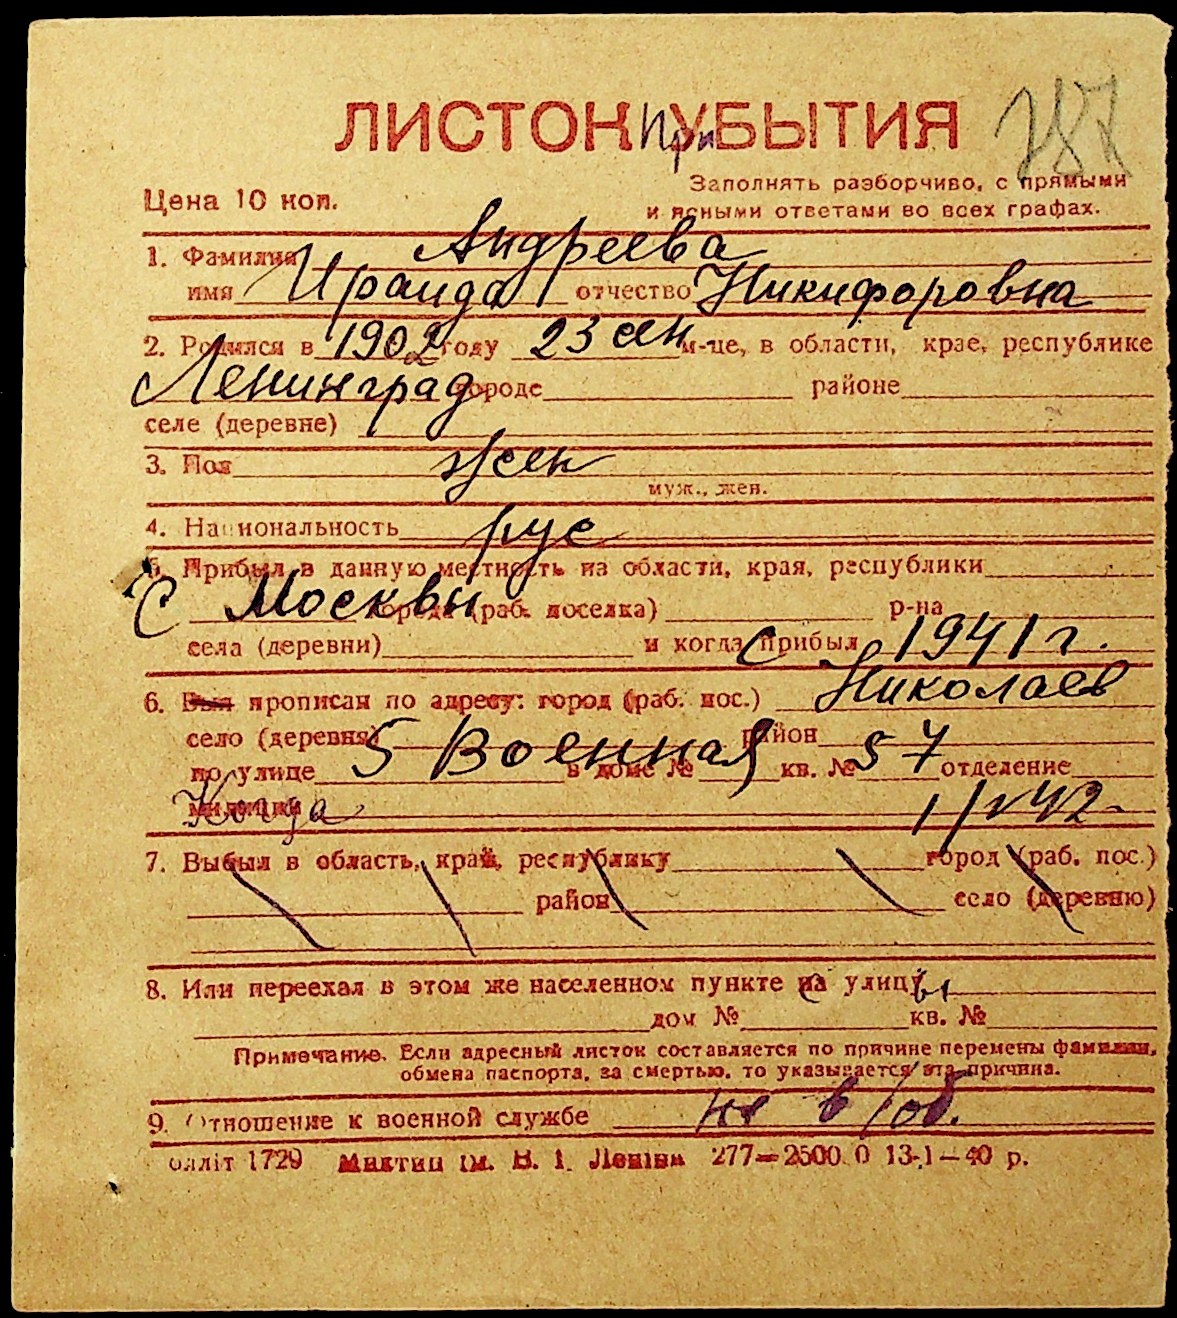 ЛИСТОК При УБЫТИЯ 787
Цена 10 коп.
Заполнять разборчиво, с прямыми
и ясными ответами во всех графах.
1. Фамилия Андреева
имя Ираида отчество Никифоровна
2. Родился в 1902 году 23 сен м-це, в области, крае, республике
Ленинград городе районе
селе (деревне)
3. Пол жен
муж., жен.
4. Национальность рус
5. Прибыл в данную местность из области, края, республики
С Москвы города (раб. поселка) р-на
села (деревни) и когда прибыл С 1941 г.
6. Был прописан по адресу: город (раб. пос.) Николаев
село (деревня) район
по улице 5 Военная в доме № кв. № 57 отделение
милиции Когда 1/V 42
7. Выбыл в область, край, республику город (раб. пос.)
район село (деревню)
8. Или переехал в этом же населенном пункте на улицу
дом № кв. №
Примечание. Если адресный листок составляется по причине перемены фамилии,
обмена паспорта, за смертью, то указывается эта причина.
9. Отношение к военной службе не в/об.
олліт 1729 Миктип ім. В. І. Леніна 277—2500. 0 13-1—40 р.